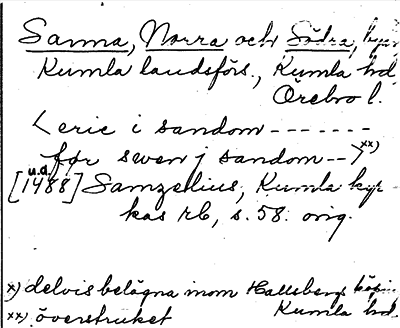 Sanna, Norra och Södra, byar
Kumla landsförs., Kumla hd
Örebro l.
< eric i sandom -------
før swen j sandom -- > xx)
u.d.
[1488] Samzelius, Kumla kyr
kas rb, s. 58. orig.
x) delvis belägna inom Hallsbergs köpin.
xx) överstruket Kumla hd.